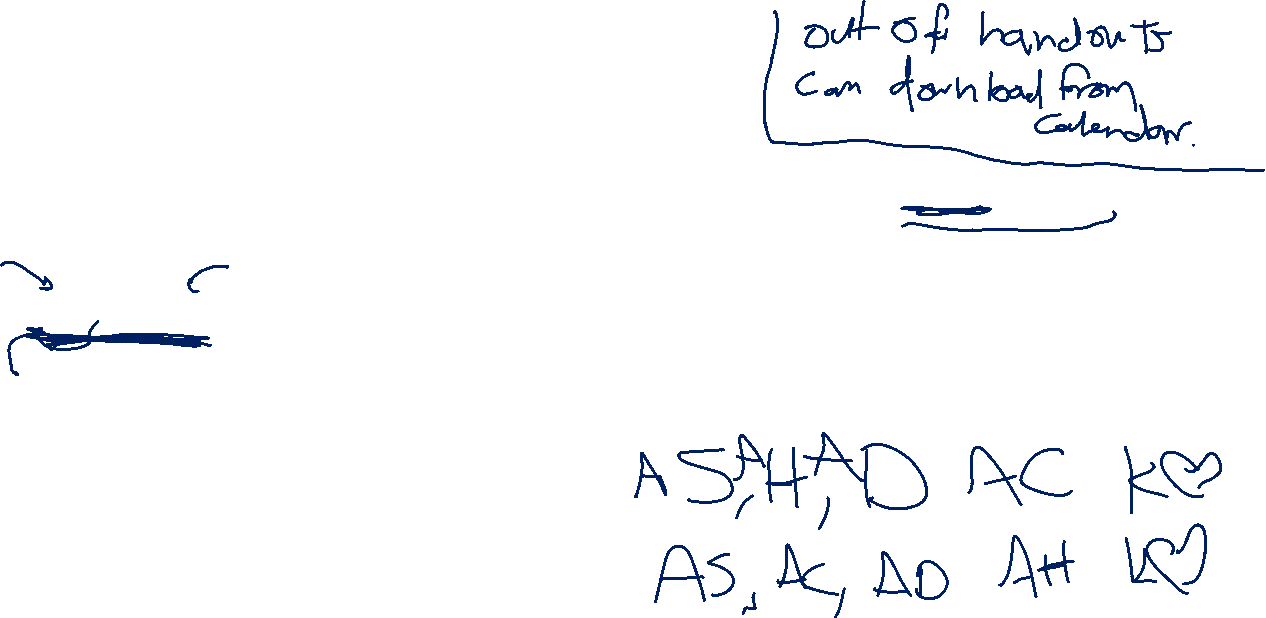 out of handouts
can download from
calendar.
AS, AH, AD AC K♡
AS, AC, AD AH K♡